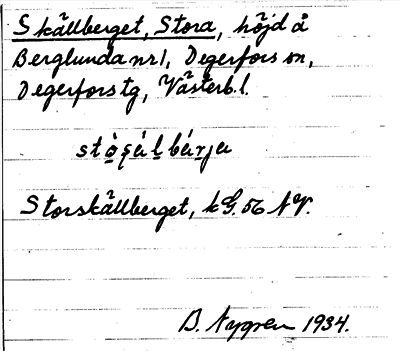 Skällberget, Stora, höjd å
Berglunda nr 1, Degerfors sn,
Degerfors tg, Västerb. l.
Storskällberget, kG. 56 NV.
B. Nygren 1934.